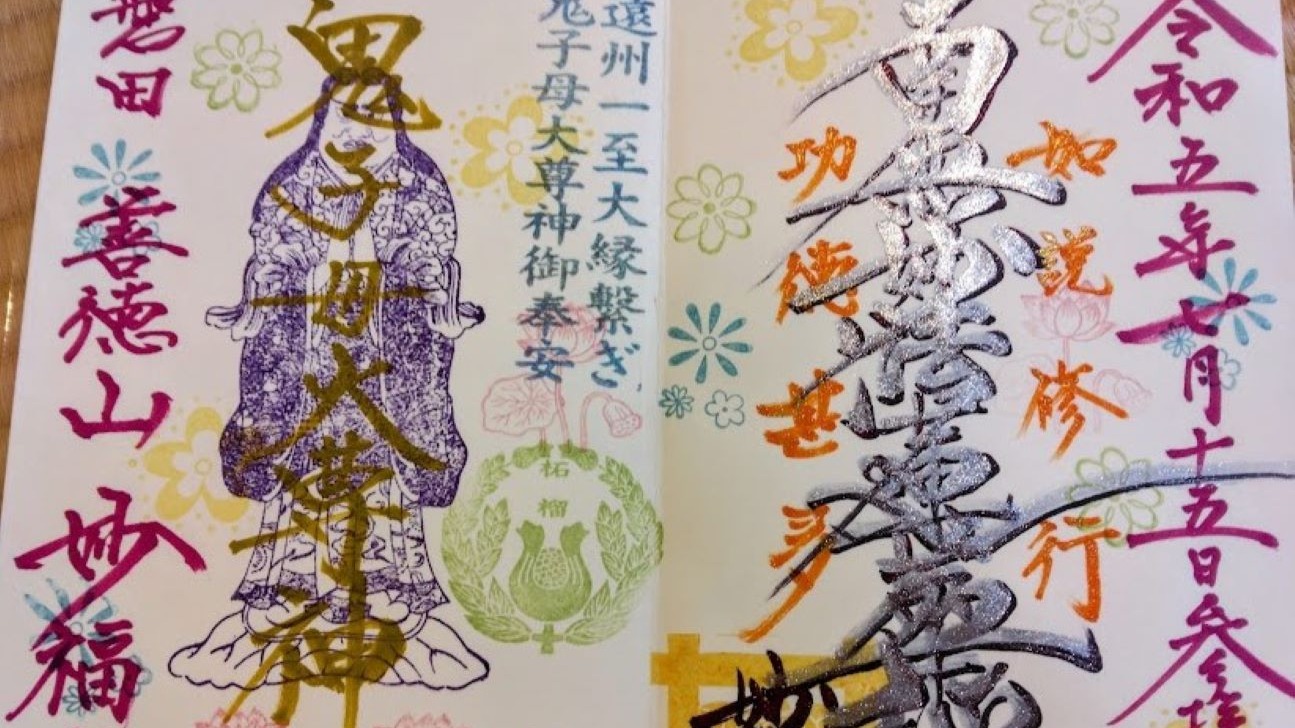 令和五年七月十五日参拝
如説修行
南無妙法蓮華経
功徳甚多
妙
遠州一至大縁繋ぎ
鬼子母大尊神御奉安
柘榴
鬼子母大尊神
磐田 善徳山 妙福